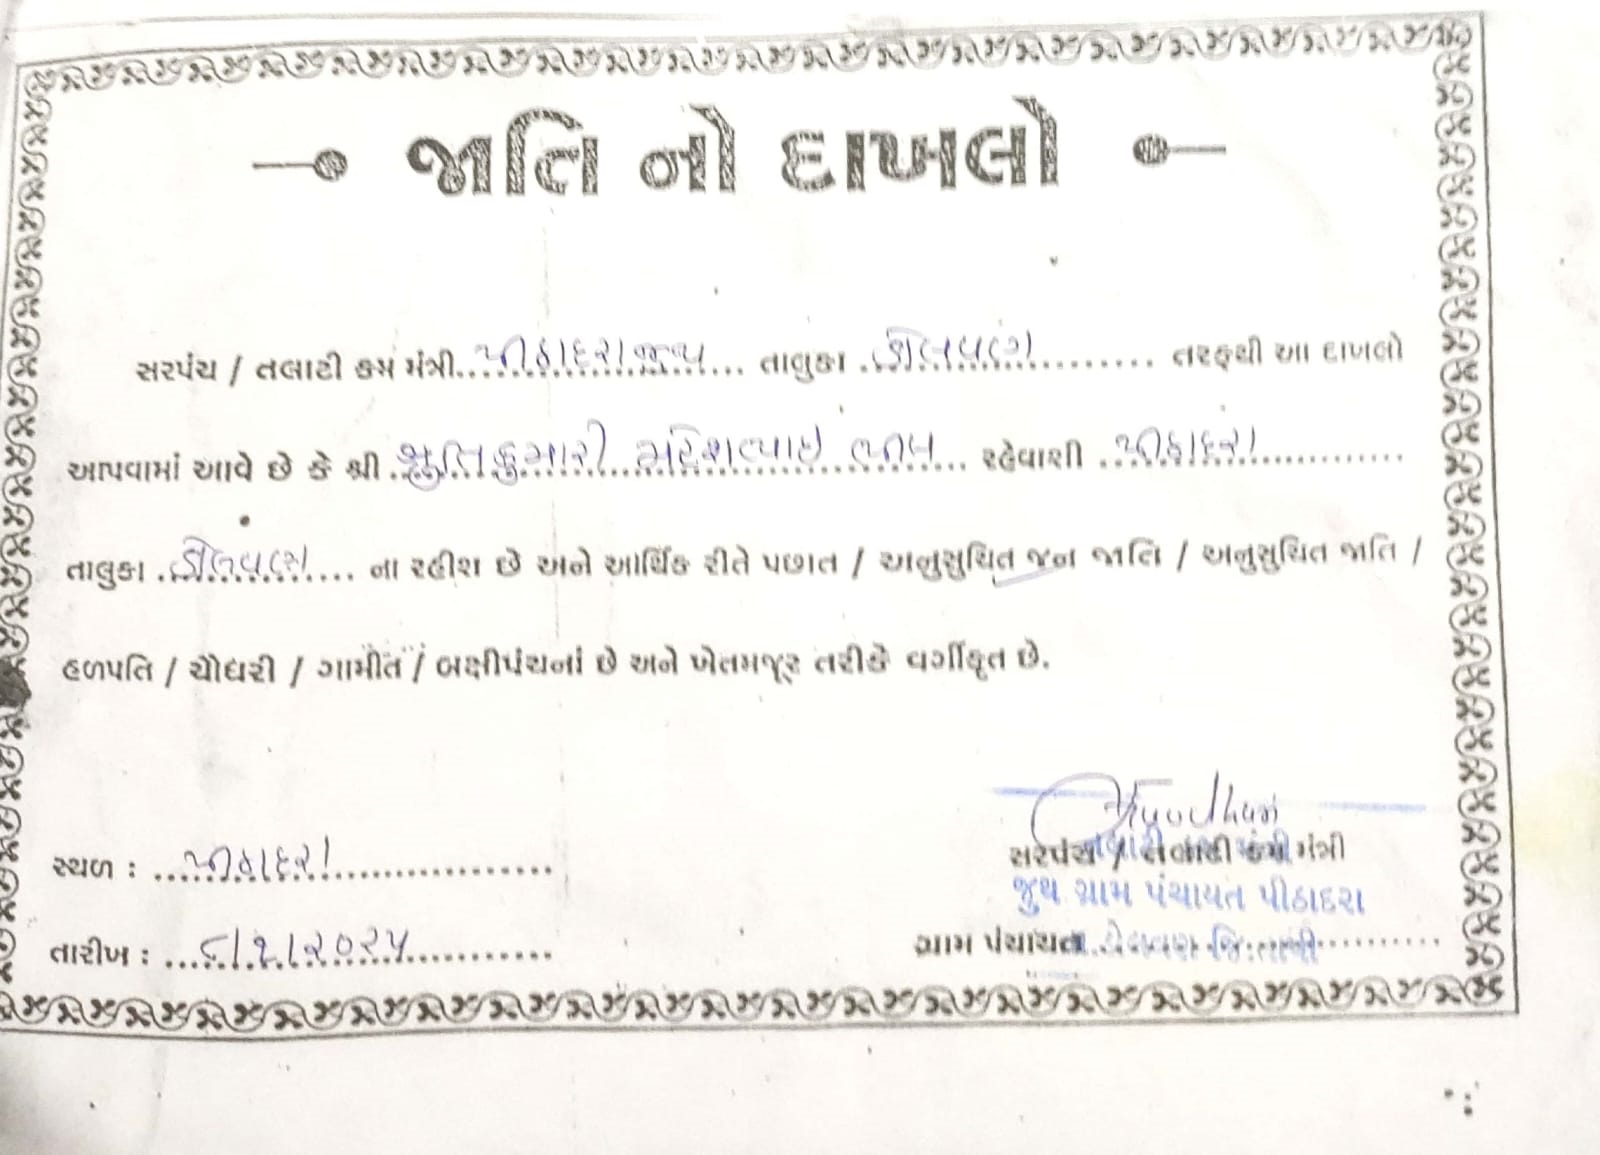 જાતિ નો દાખલો
સરપંચ / તલાટી કમ મંત્રી પીઠાદરા જુથ તાલુકા ડોલવણ તરફથી આ દાખલો
આપવામાં આવે છે કે શ્રી શ્રુતિકુમારી મહેશભાઇ રહેવાશી પીઠાદરા
તાલુકા ડોલવણ ના રહીશ છે અને આર્થિક રીતે પછાત / અનુસુચિત જન જાતિ / અનુસુચિત જાતિ /
હળપતિ / ચૌધરી / ગામીત / બક્ષીપંચનાં છે અને ખેતમજૂર તરીકે વર્ગીકૃત છે.
સ્થળ : પીઠાદરા
સરપંચ / તલાટી કમ મંત્રી
જુથ ગ્રામ પંચાયત પીઠાદરા
તારીખ : ૮/૧/૨૦૨૫
ગ્રામ પંચાયત ડોલવણ જિ.તાપી